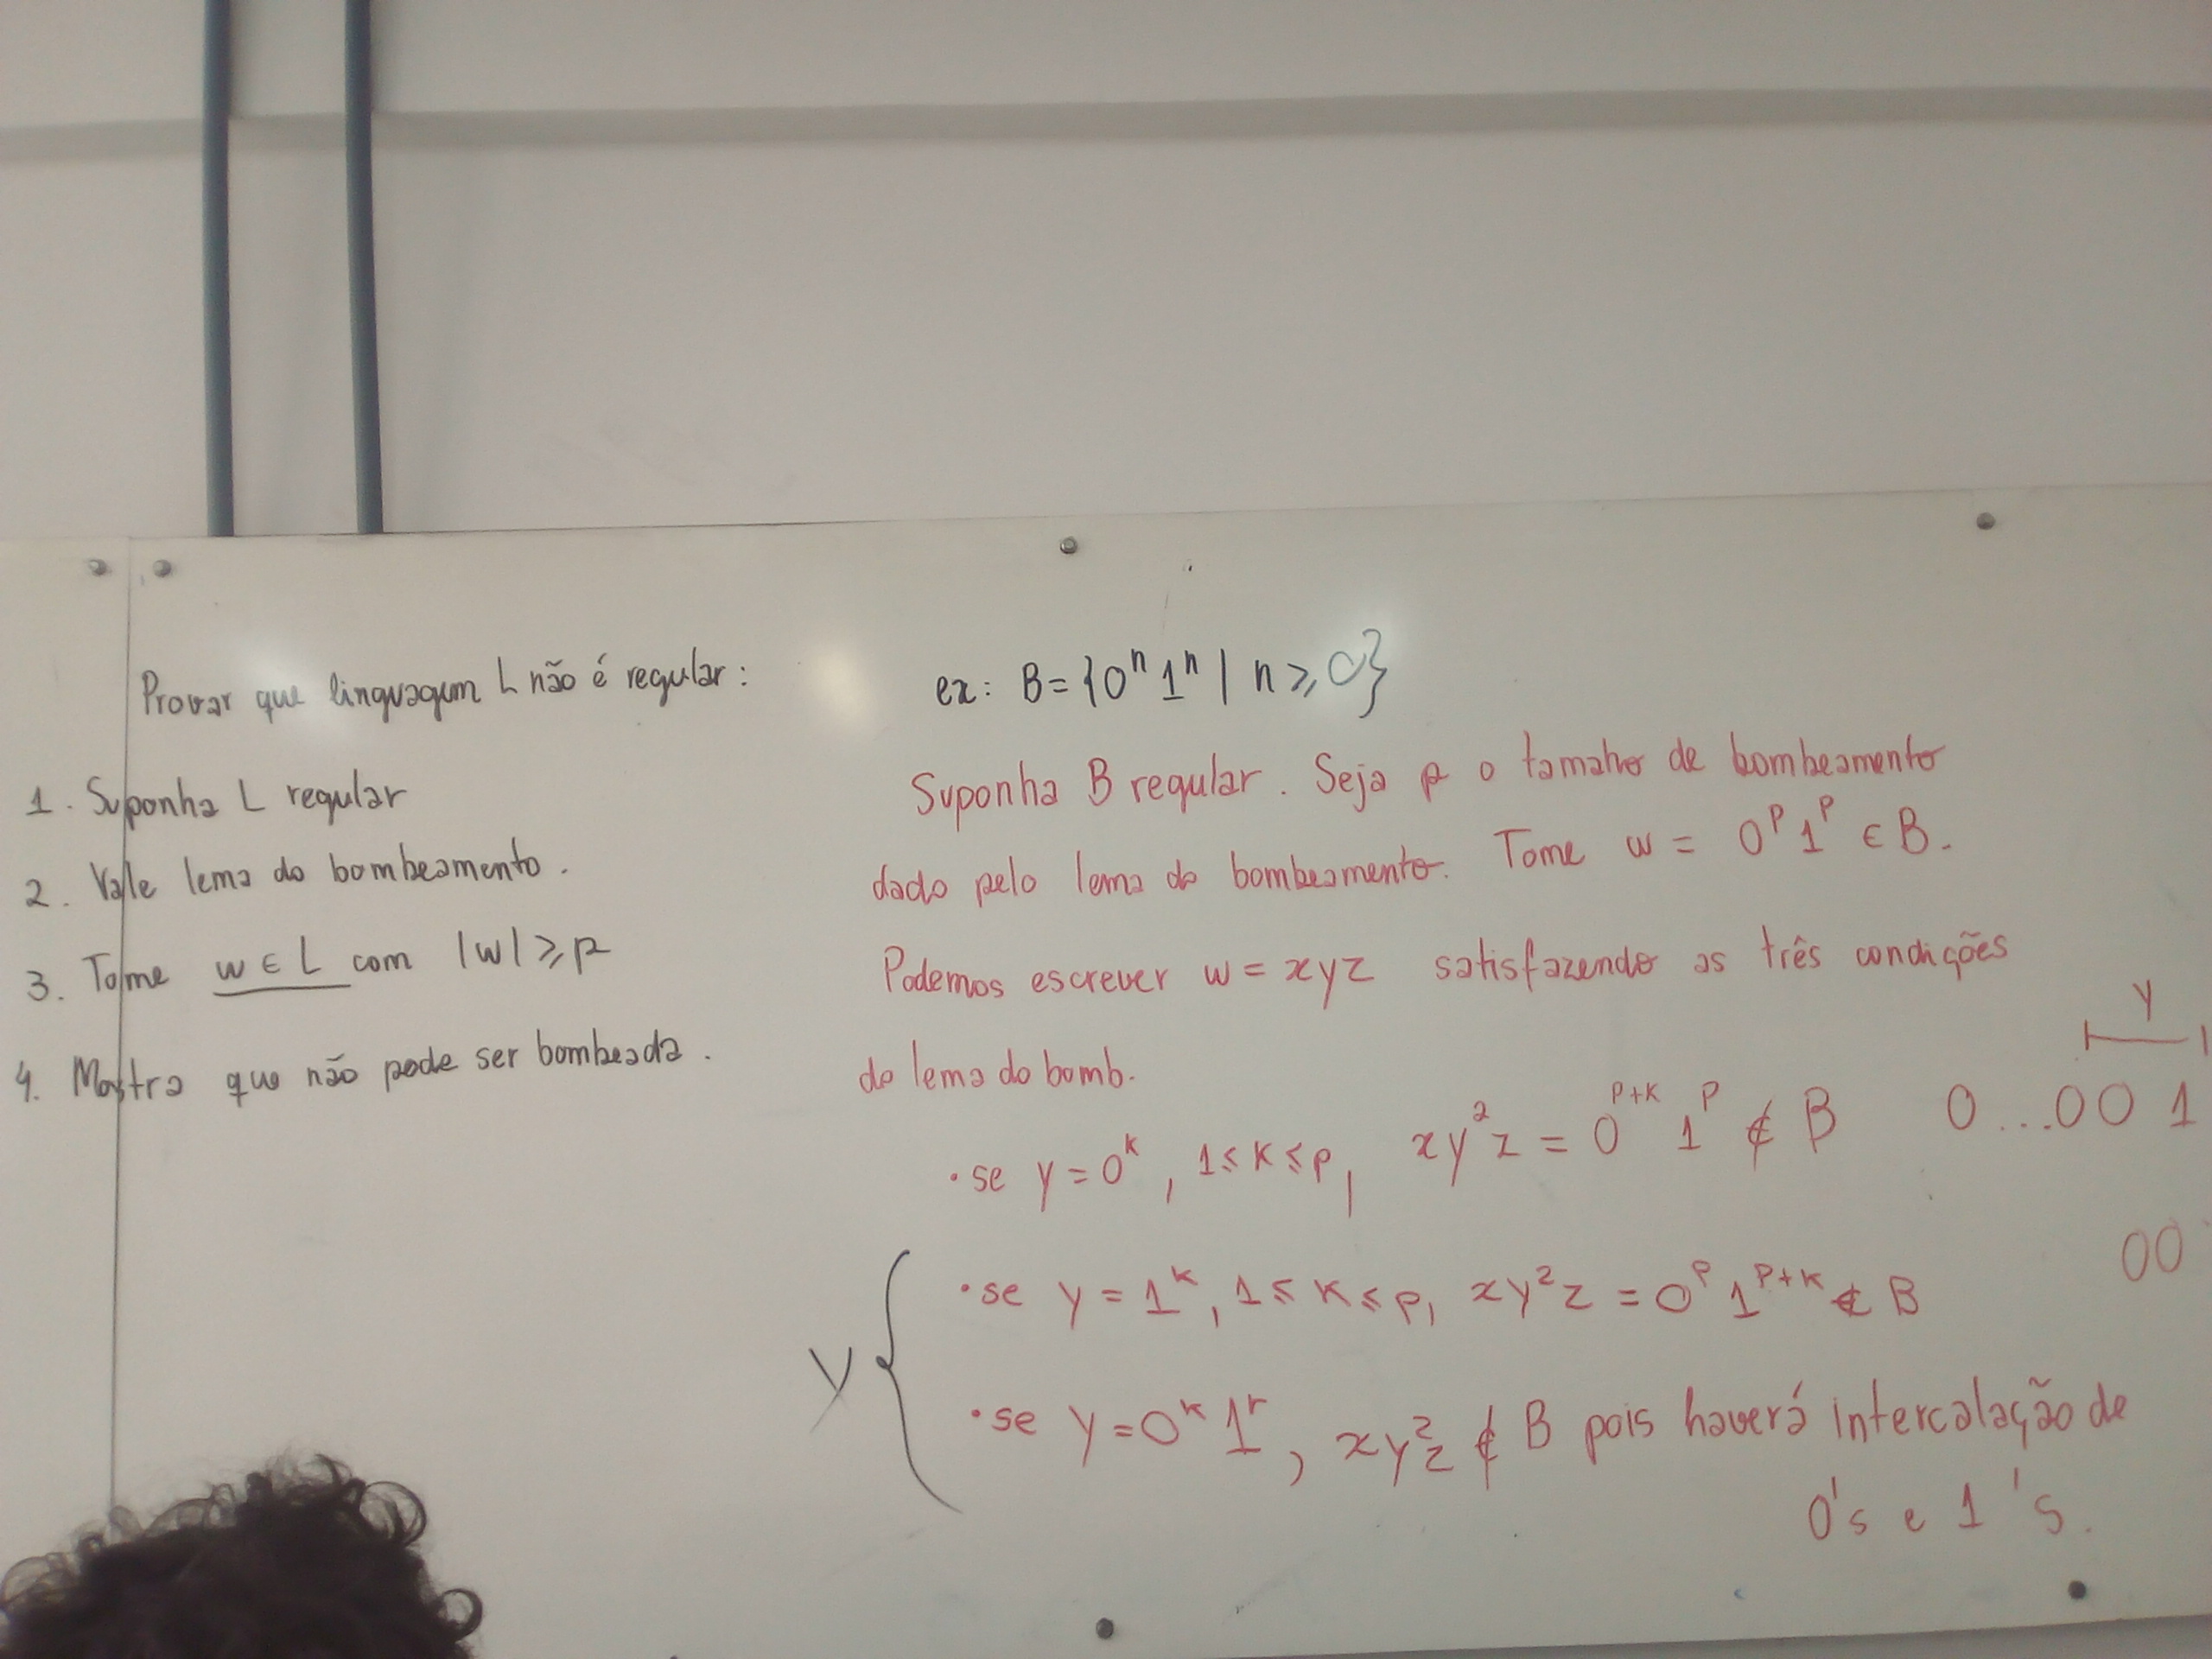 Provar que linguagem L não é regular:
1. Suponha L regular
2. Vale lema do bombeamento.
3. Tome w ∈ L com |w| ⩾ p
4. Mostra que não pode ser bombeada.
ex: B = {0ⁿ 1ⁿ | n ⩾ 0}
Suponha B regular. Seja p o tamaho de bombeamento
dado pelo lema do bombeamento. Tome w = 0ᵖ 1ᵖ ∈ B.
Podemos escrever w = xyz satisfazendo as três condições
do lema do bomb.
• se y = 0ᵏ, 1 ≤ k ≤ p, xy²z = 0ᵖ⁺ᵏ 1ᵖ ∉ B
y
0...00 1
00
y {
• se y = 1ᵏ, 1 ≤ k ≤ p, xy²z = 0ᵖ 1ᵖ⁺ᵏ ∉ B
• se y = 0ᵏ 1ʳ, xy²z ∉ B pois haverá intercalação de
0's e 1's.